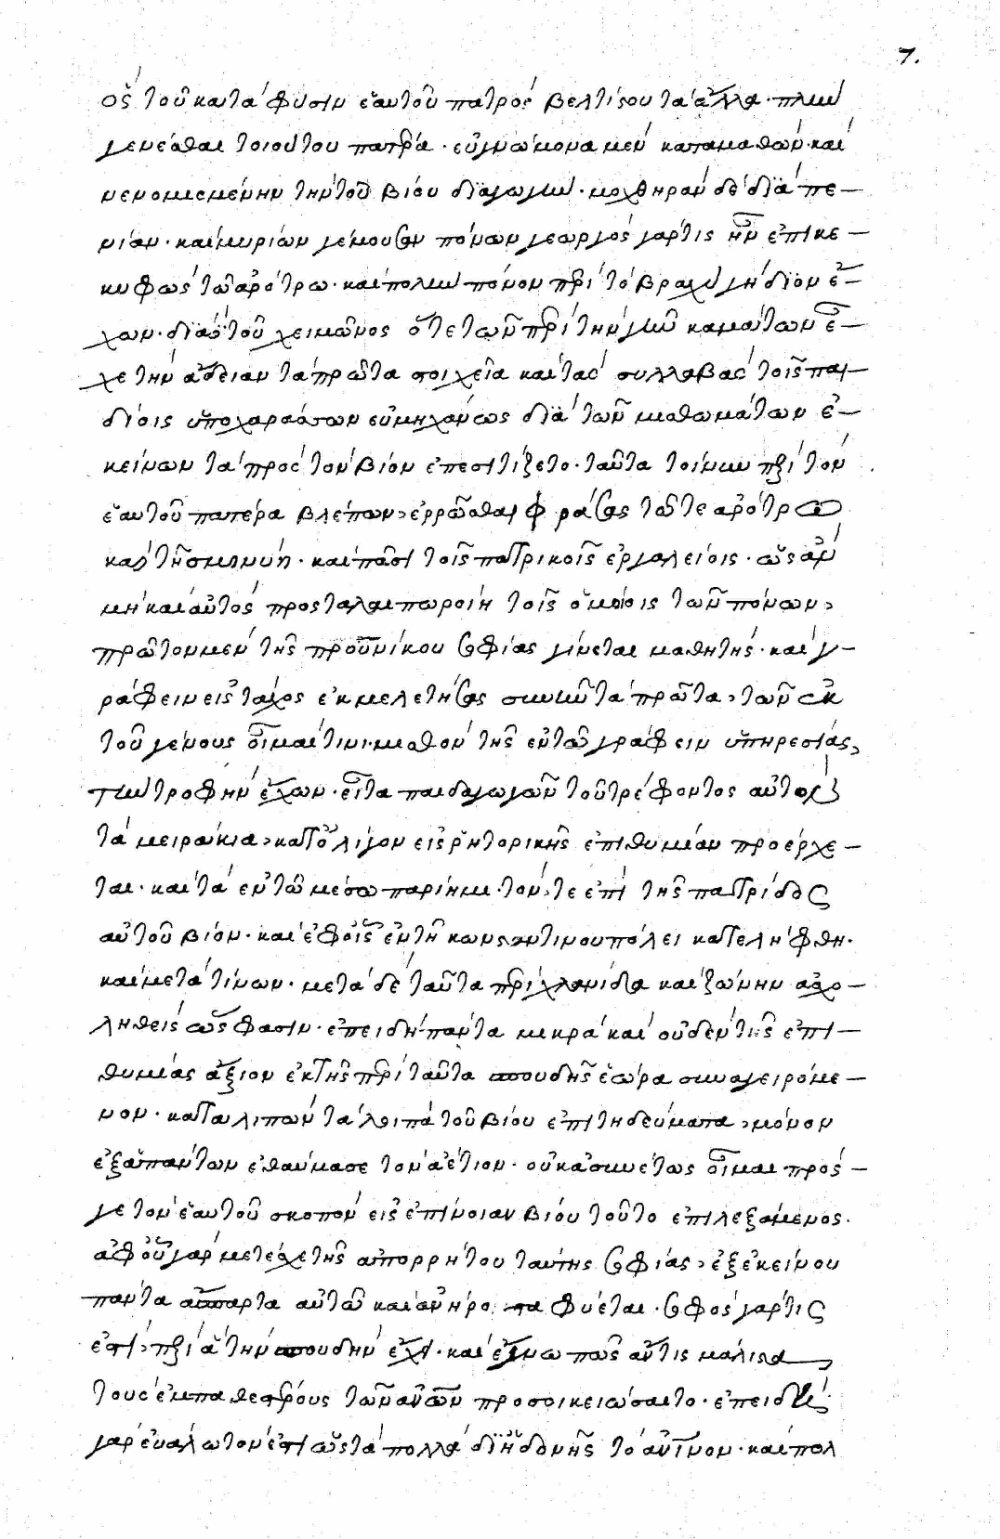 7.
ὃς τοῦ κατὰ φύσιν ἑαυτοῦ πατρὸς βελτίστου τὰ ἄλλα· πλὴν
γενέσθαι τοιούτου πατρὸς· εὐγνώμονα μὲν καταμαθὼν· καὶ
νενομισμένην τὴν τοῦ βίου διαγωγὴν· μοχθηρὰν δὲ διὰ πε–
νίαν· καὶ μυρίων γέμουσαν πόνων γεωργὸς γάρ τις ἦν ἐπικε–
κυφὼς τῷ ἀρότρῳ· καὶ πολὺν πόνον περὶ τὸ βραχὺ γήδιον ἔ–
χων· διὰ τοῦ χειμῶνος ὅτε τῶν περὶ τὴν γῆν καμάτων εἶ–
χε τὴν ἄδειαν τὰ πρῶτα στοιχεῖα καὶ τὰς συλλαβὰς τοῖς παι–
δίοις ὑποχαράσσων εὐμηχάνως διὰ τῶν μαθημάτων ἐ–
κείνων τὰ πρὸς τὸν βίον ἐπεσιτίζετο· ταῦτα τοίνυν περὶ τὸν
ἑαυτοῦ πατέρα βλέπων, ἐρρῶσθαι φράσας τῷ τε ἀρότρῳ
καὶ τῇ σμινύῃ· καὶ πᾶσι τοῖς πατρικοῖς ἐργαλείοις· ὡς ἂν
μὴ καὶ αὐτὸς προσταλαιπωροίη τοῖς ὁμοίοις τῶν πόνων,
πρῶτον μὲν τῆς προυνίκου σοφίας γίνεται μαθητής· καὶ γ–
ράφειν εἰς τάχος ἐκμελετήσας συνῆν τὰ πρῶτα, τῶν ἐκ
τοῦ γένους οἶμαί τινι· μισθὸν τῆς ἐν τῷ γράφειν ὑπηρεσίας,
τὴν τροφὴν ἔχων· εἶτα παιδαγωγῶν τοῦ τρέφοντος αὐτὸν
τὰ μειράκια, κατ' ὀλίγον εἰς ῥητορικῆς ἐπιθυμίαν προέρχε–
ται· καὶ τὰ ἐν τῷ μέσῳ παρίημι· τόν, τε ἐπὶ τῆς πατρίδος
αὐτοῦ βίον· καὶ ἐφ' οἷς ἐν τῇ κωνσταντινουπόλει κατελήφθη·
καὶ μετὰ τίνων· μετὰ δὲ ταῦτα περὶ χλανίδα καὶ ζώνην ἀσχο–
ληθεὶς ὥς φασιν· ἐπειδὴ πάντα μικρὰ καὶ οὐδὲν τῆς ἐπι–
θυμίας ἄξιον ἐκ τῆς περὶ ταῦτα σπουδῆς ἑώρα συναγειρόμε–
νον· καταλιπὼν τὰ λοιπὰ τοῦ βίου ἐπιτηδεύματα, μόνον
ἐξ ἁπάντων ἐθαύμασε τὸν ἀέτιον· οὐκ ἀσυνέτως οἶμαι πρός–
γε τὸν ἑαυτοῦ σκοπὸν εἰς ἐπίνοιαν βίου τοῦτο ἐπιλεξάμενος·
ἀφ' οὗ γὰρ μετέσχε τῆς ἀπορρήτου ταύτης σοφίας, ἐξ ἐκείνου
πάντα ἄσπαρτα αὐτῷ καὶ ἀνήροτα φύεται· σοφὸς γάρ τις
ἐστὶ, περὶ ἃ τὴν σπουδὴν ἔχει· καὶ ἔγνω πῶς ἄν τις μάλιστα
τοὺς ἐμπαθεστέρους τῶν ἀνθρώπων προσοικειώσαιτο· ἐπειδὴ
γὰρ εὐάλωτόν ἐστιν ὡς τὰ πολλὰ δι' ἡδονῆς τὸ ἀνθρώπινον· καὶ πολ